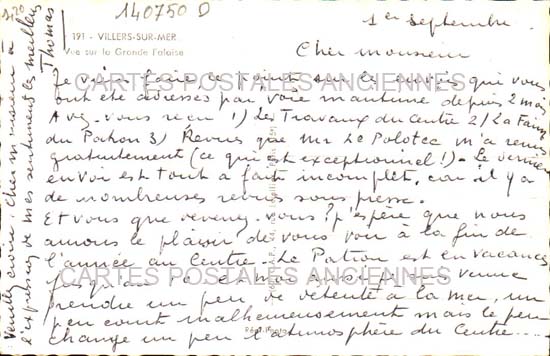 140750 D
191 - VILLERS-SUR-MER
Vue sur la Grande Falaise
1er septembre.
Cher monsieur
Je viens faire le point sur les envois qui vous
ont été adressés par votre depuis 2 mois
Avez-vous reçu 1) Les Travaux du Centre 2) La Faune
du 3) Revues que Mr Le m'a remis
gratuitement (ce qui est exceptionnel !) - Le dernier
envoi est tout à fait incomplet, car il y a
de nombreuses revues sous presse.
Et vous que devenez-vous ? J'espère que nous
aurons le plaisir de vous voir à la fin de
l'année au Centre. Le Patron est en vacances
et moi aussi je suis venue
prendre un peu de détente à la mer, un
peu court malheureusement mais le peu
change un peu l'atmosphère du Centre...
Veuillez croire Cher monsieur à
l'expression de mes sentiments les meilleurs
Thomas
CARTES POSTALES ANCIENNES
CARTES POSTALES ANCIENNES